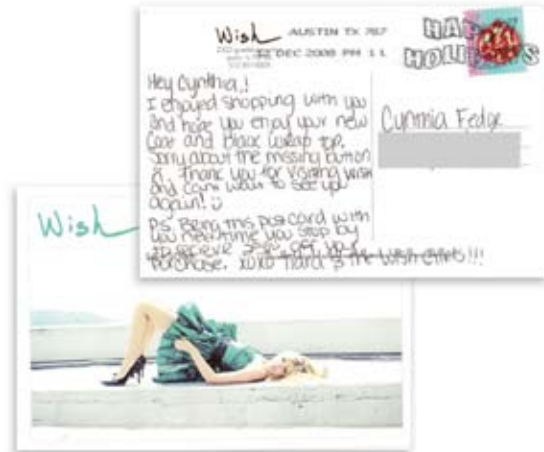 Wish
AUSTIN TX 787
12 DEC 2008 PM 11
HAPPY
HOLIDAYS
Hey Cynthia,!
I enjoyed shopping with you
and hope you enjoy your new
coat and black wrap top.
Sorry about the missing button
Thank you for visiting wish
and can't wait to see you
again!
P.S. Bring this postcard with
you next time you stop by
to recieve off your
purchase. xoxo & the Wish
Cynthia Fedge
Wish